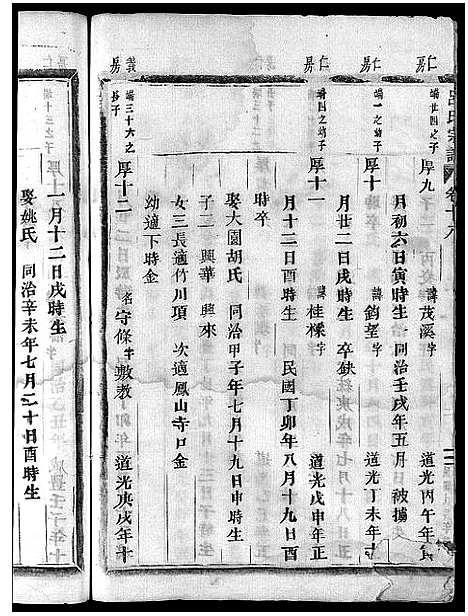 仁房
端廿四之子
厚九　諱茂溪　字　道光丙午年
月初六日寅時生　同治壬戌年五月被擄
仁房
端一之幼子
厚十　諱鈞望　字　道光丁未年
月廿二日戌時生　卒缺
仁房
端四之幼子
厚十一　諱桂祿　字　道光戊申年正
月十二日酉時生　民國丁卯年八月十九日酉
時卒
娶大園胡氏　同治甲子年七月十九日申時生
子二　興華　興來
女三長適竹川項　次適鳳山寺口金
幼適下時金
義房
端三十六之長子
厚十二　名守條　字敷教　道光庚戌年十
一月十二日戌時生
娶姚氏　同治辛未年七月二十日酉時生